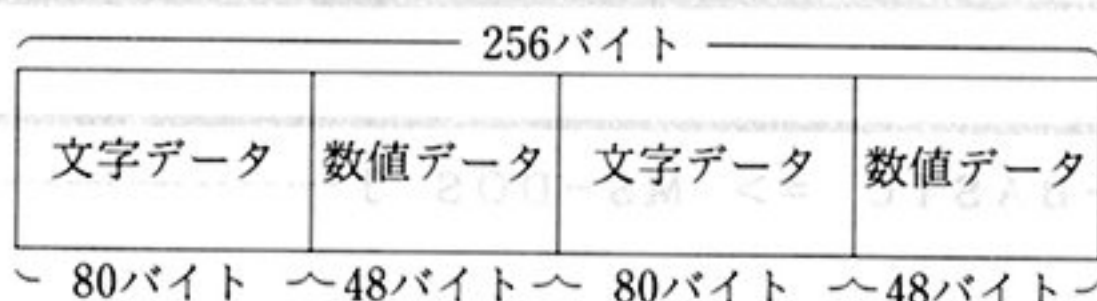 256バイト
文字データ 数値データ 文字データ 数値データ
80バイト 48バイト 80バイト 48バイト